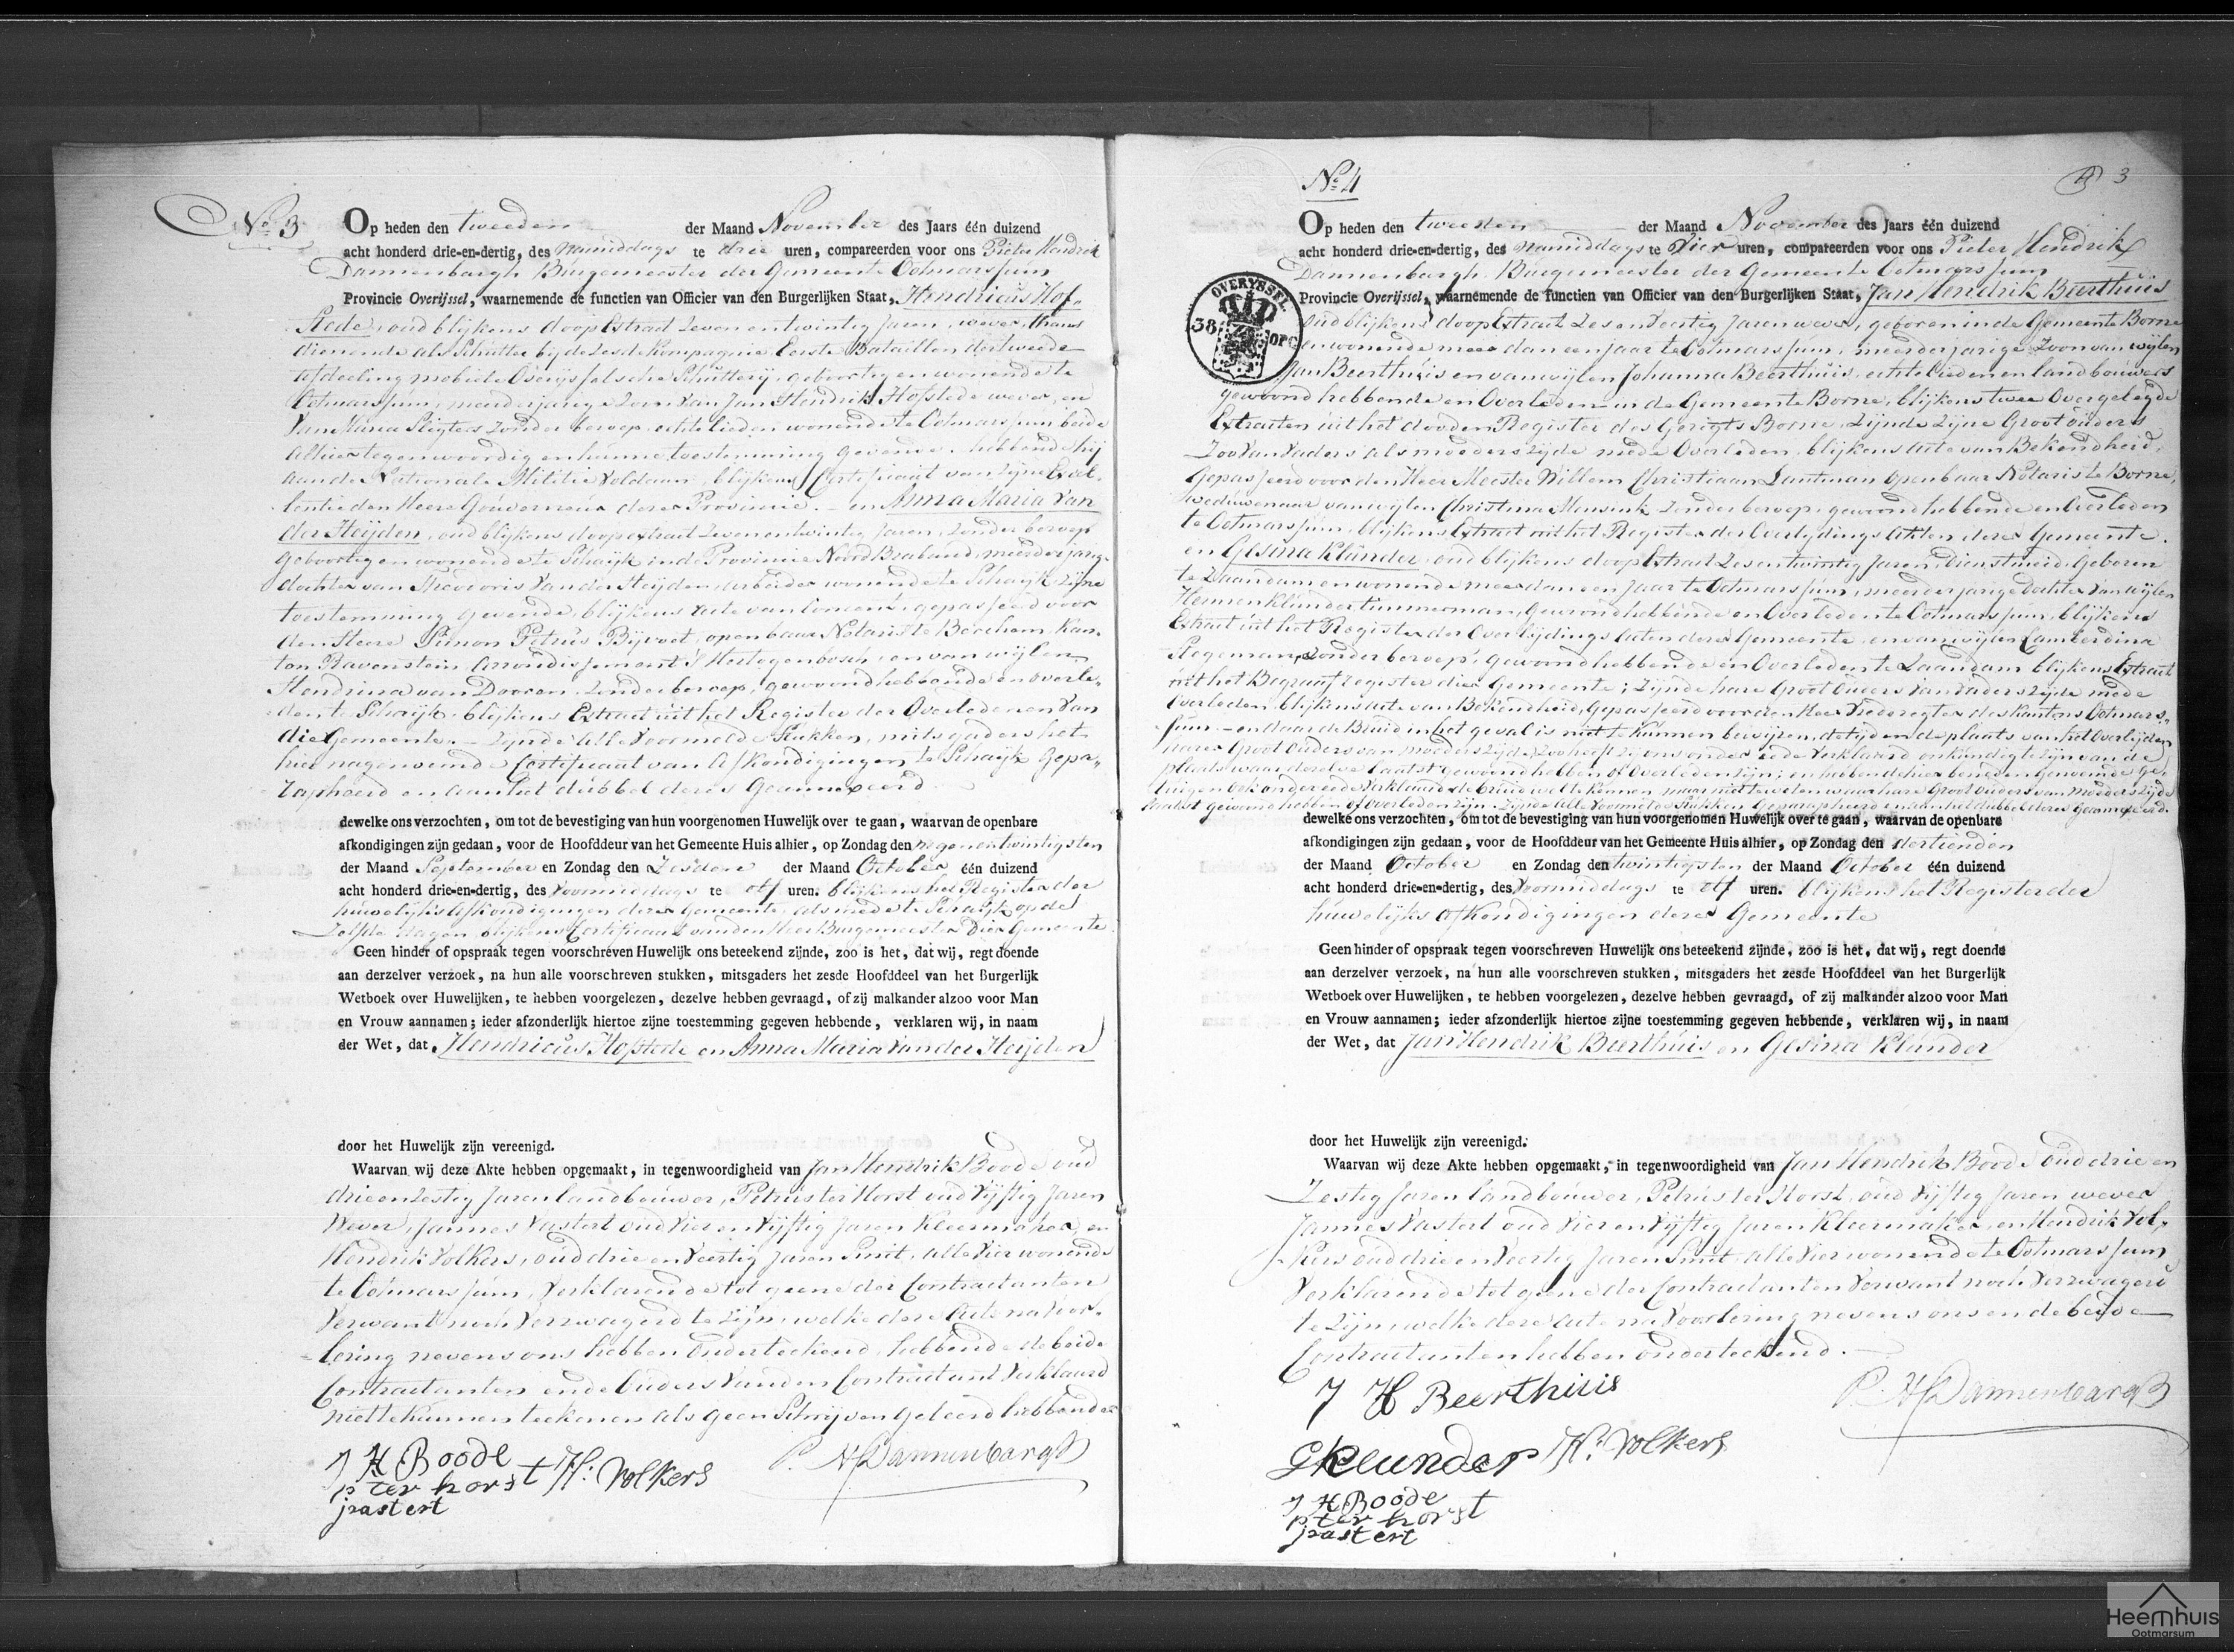 No 3
Op heden den tweeden der Maand November des Jaars één duizend
acht honderd drie-en-dertig, des namiddags te drie uren, compareerden voor ons Pieter Hendrik
Dannenbargh Burgemeester der Gemeente Ootmarssum
Provincie Overijssel, waarnemende de functien van Officier van den Burgerlijken Staat, Hendricus Hof-
stede, oud blijkens doop Extract zeven en twintig Jaren, wever, thans
dienende als Schutter bij de zesde kompagnie Eerste Bataillon der tweede
afdeeling mobiele Overijsselsche Schutterij, geboortig en wonende te
Ootmarssum, meerderjarige Zoon van Jan Hendrik Hofstede wever, en
van Maria zonder beroep, echtelieden wonende te Ootmarssum beide
alhier tegenwoordig en hunne toestemming gevende, hebbende hij
aan de Nationale Militie voldaan, blijkens Certificaat van zijne Excel-
lentie den Heere Gouverneur dezer Provincie. - en Anna Maria van
der Heijden, oud blijkens doopextract zevenentwintig Jaren, zonder beroep
geboortig en wonende te Schaijk in de Provincie Noord Braband, meerderjarige
dochter van Theodoris van der Heijden, arbeider wonende te Schaijk zijne
toestemming gevende, blijkens acte van Consent, gepasseerd voor
den Heere Simon Petrus Bijvoet, openbaar Notaris te Berchem, Kan-
ton Ravenstein Arrondissement 's Hertogenbosch, en van wijlen
Hendrina van Dooren, zonder beroep, gewoond hebbende en overle-
den te Schaijk, blijkens Extract uit het Register der Overledenen van
die Gemeente. - Zijnde alle voormelde Stukken, mitsgaders het
hier nagenoemde Certificaat van Afkondigingen te Schaijk gepa-
rapheerd en aan het dubbel dezes Geannexeerd
dewelke ons verzochten, om tot de bevestiging van hun voorgenomen Huwelijk over te gaan, waarvan de openbare
afkondigingen zijn gedaan, voor de Hoofddeur van het Gemeente Huis alhier, op Zondag den negenentwintigsten
der Maand September en Zondag den Zesden der Maand October één duizend
acht honderd drie-en-dertig, des voormiddags te elf uren. blijkens het Register der
huwelijks Afkondigingen dezer Gemeente, als mede te Schaijk op de
zelfde dagen, blijkens Certificaat van den Heer Burgemeester dier Gemeente
Geen hinder of opspraak tegen voorschreven Huwelijk ons beteekend zijnde, zoo is het, dat wij, regt doende
aan derzelver verzoek, na hun alle voorschreven stukken, mitsgaders het zesde Hoofddeel van het Burgerlijk
Wetboek over Huwelijken, te hebben voorgelezen, dezelve hebben gevraagd, of zij malkander alzoo voor Man
en Vrouw aannamen; ieder afzonderlijk hiertoe zijne toestemming gegeven hebbende, verklaren wij, in naam
der Wet, dat Hendricus Hofstede en Anna Maria van der Heijden
door het Huwelijk zijn vereenigd.
Waarvan wij deze Akte hebben opgemaakt, in tegenwoordigheid van Jan Hendrik Boode oud
drieenzestig Jaren landbouwer, Petrus ter Horst oud vijftig Jaren
Wever, Jannes Vastert oud vier en vijftig Jaren Kleermaker en
Hendrik Volkers, oud drie en veertig Jaren Smit, alle vier wonende
te Ootmarssum, verklarende tot geene der Contractanten
verwant noch verzwagerd te zijn, welke deze Acte na voor-
lezing nevens ons hebben onderteekend, hebbende de beide
Contractanten en de Ouders van den Contractant verklaard
niet te kunnen teekenen als geen Schrijven geleerd hebbende
J H Boode
p ter horst H: Volkers P. H Dannenbargh
jvastert
No 4
3
Op heden den tweeden der Maand November des Jaars één duizend
acht honderd drie-en-dertig, des namiddags te vier uren, compareerden voor ons Pieter Hendrik
Dannenbargh Burgemeester der Gemeente Ootmarssum
OVERYSSEL
38 OPC
Provincie Overijssel, waarnemende de functien van Officier van den Burgerlijken Staat, Jan Hendrik Beerthuis
oud blijkens doop Extract zesenveertig Jaren wever, geboren in de Gemeente Borne
en wonende meer dan een jaar te Ootmarssum, meerderjarige Zoon van wijlen
Jan Beerthuis en van wijlen Johanna Beerthuis, echtelieden en landbouwers
gewoond hebbende en Overleden in de Gemeente Borne, blijkens twee Overgelegde
Extracten uit het dooden Register des Gerigts Borne, zijnde zijne Grootouders
zoo van vaders als moeders zijde mede Overleden, blijkens acte van Bekendheid,
Gepasseerd voor den Heer Meester Willem Christiaan Lantman openbaar Notaris te Borne,
weduwenaar van wijlen Christina Mensink zonder beroep, gewoond hebbende en Overleden
te Ootmarssum, blijkens Extract uit het Register der Overlijdings Akten dezer Gemeente.
en Gesina Klunder, oud blijkens doop Extract zesentwintig Jaren, dienstmeid, Geboren
te Zaandam en wonende meer dan een Jaar te Ootmarssum, meerderjarige dochter van wijlen
Hermen Klunder timmerman, Gewoond hebbende en Overleden te Ootmarssum, blijkens
Extract uit het Register der Overlijdings acten dezer Gemeente, en van wijlen Lamberdina
Stegeman, zonder beroep, gewoond hebbende en Overleden te Zaandam blijkens Extract
uit het Begraaf register dier Gemeente; zijnde hare Groot Ouders van vaders zijde mede
Overleden, blijkens acte van Bekendheid, gepasseerd voor den Heer Vrederegter des Kantons Ootmars-
sum. - en daar de Bruid in het geval is niet te kunnen bewijzen, de tijd en de plaats van het Overlijden
harer Groot Ouders van moeders zijde, zoo heeft zij ons onder eede verklaard onkundig te zijn van de
plaats waar dezelve laatst gewoond hebben of Overleden zijn; en hebben de hier beneden genoemde ge-
tuigen ook onder eede verklaard de bruid wel te kennen, maar niet te weten waar hare Groot ouders van moeders zijde
laatst gewoond hebben of overleden zijn. Zijnde alle voormelde Stukken geparapheerd en aan het dubbel dezes geannexeerd.
dewelke ons verzochten, om tot de bevestiging van hun voorgenomen Huwelijk over te gaan, waarvan de openbare
afkondigingen zijn gedaan, voor de Hoofddeur van het Gemeente Huis alhier, op Zondag den dertienden
der Maand October en Zondag den twintigsten der Maand October één duizend
acht honderd drie-en-dertig, des voormiddags te elf uren. blijkens het Register der
huwelijks afkondigingen dezer Gemeente
Geen hinder of opspraak tegen voorschreven Huwelijk ons beteekend zijnde, zoo is het, dat wij, regt doende
aan derzelver verzoek, na hun alle voorschreven stukken, mitsgaders het zesde Hoofddeel van het Burgerlijk
Wetboek over Huwelijken, te hebben voorgelezen, dezelve hebben gevraagd, of zij malkander alzoo voor Man
en Vrouw aannamen; ieder afzonderlijk hiertoe zijne toestemming gegeven hebbende, verklaren wij, in naam
der Wet, dat Jan Hendrik Beerthuis en Gesina Klunder
door het Huwelijk zijn vereenigd.
Waarvan wij deze Akte hebben opgemaakt, in tegenwoordigheid van Jan Hendrik Boode oud drie en
Zestig Jaren landbouwer, Petrus ter Horst, oud vijftig Jaren wever
Jannes Vastert oud vier en vijftig Jaren Kleermaker, en Hendrik Vol-
kers oud drie en veertig Jaren Smit, alle vier wonende te Ootmarssum,
verklarende tot geene der Contractanten verwant noch verzwagerd
te zijn, welke deze acte na voorlezing nevens ons en de beide
Contractanten hebben onderteekend.
J H Beerthuis P. H Dannenbargh
G klunder H: Volkers
J H Boode
p ter horst
jvastert
Heemhuis
Ootmarsum